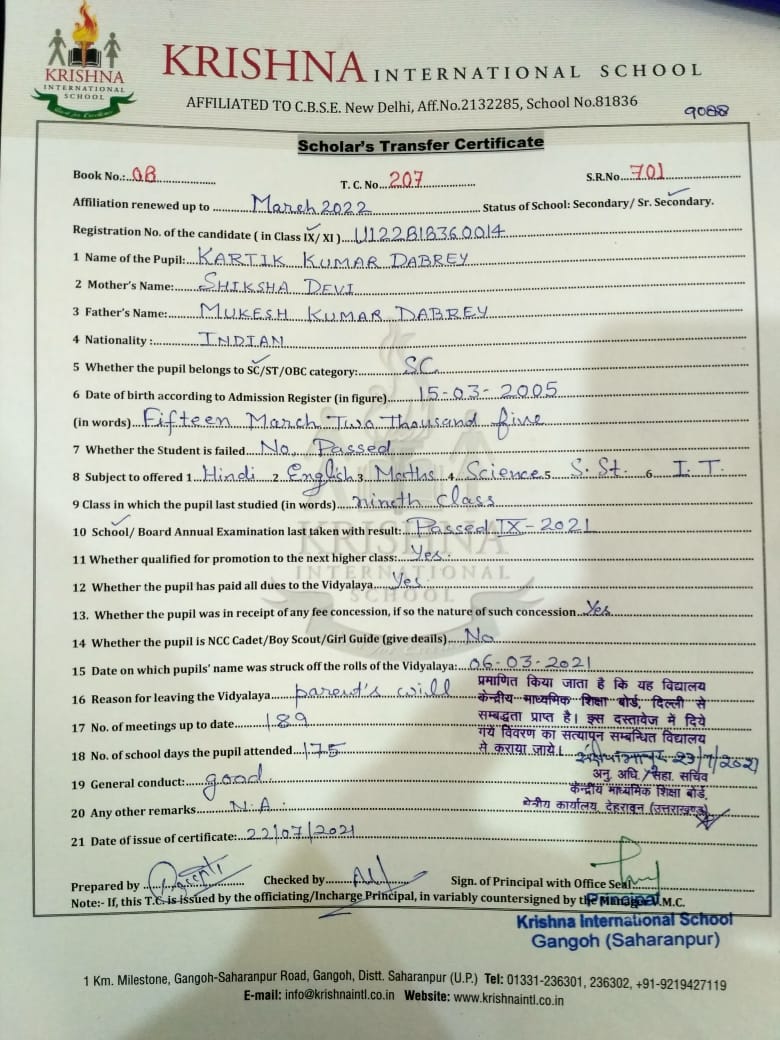 KRISHNA
INTERNATIONAL
SCHOOL
KRISHNA INTERNATIONAL SCHOOL
AFFILIATED TO C.B.S.E. New Delhi, Aff.No.2132285, School No.81836
9088
Scholar's Transfer Certificate
Book No.: 08 T. C. No. 207 S.R.No. 701
Affiliation renewed up to March 2022 Status of School: Secondary/ Sr. Secondary.
Registration No. of the candidate ( in Class IX/ XI ) U122B1B360014
1 Name of the Pupil: KARTIK KUMAR DABREY
2 Mother's Name: SHIKSHA DEVI
3 Father's Name: MUKESH KUMAR DABREY
4 Nationality : INDIAN
5 Whether the pupil belongs to SC/ST/OBC category: SC
6 Date of birth according to Admission Register (in figure) 15-03-2005
(in words) Fifteen March Two Thousand five
7 Whether the Student is failed No, Passed
8 Subject to offered 1 Hindi 2 English 3 Maths 4 Science 5 S.St. 6 I.T.
9 Class in which the pupil last studied (in words) nineth class
10 School/ Board Annual Examination last taken with result: Passed IX-2021
11 Whether qualified for promotion to the next higher class: Yes.
12 Whether the pupil has paid all dues to the Vidyalaya Yes
13. Whether the pupil was in receipt of any fee concession, if so the nature of such concession Yes
14 Whether the pupil is NCC Cadet/Boy Scout/Girl Guide (give deails) No
15 Date on which pupils' name was struck off the rolls of the Vidyalaya: 06-03-2021
16 Reason for leaving the Vidyalaya parent's will
17 No. of meetings up to date 189
18 No. of school days the pupil attended 175
19 General conduct: good
20 Any other remarks N.A.
21 Date of issue of certificate: 22/07/2021
प्रमाणित किया जाता है कि यह विद्यालय
केन्द्रीय माध्यमिक शिक्षा बोर्ड, दिल्ली से
सम्बद्धता प्राप्त है। इस दस्तावेज में दिये
गये विवरण का सत्यापन सम्बन्धित विद्यालय
से कराया जाये।
23/7/2021
अनु. अधि./सहा. सचिव
केन्द्रीय माध्यमिक शिक्षा बोर्ड,
क्षेत्रीय कार्यालय, देहरादून (उत्तराखण्ड)
Prepared by Checked by Sign. of Principal with Office Seal
Note:- If, this T.C. is issued by the officiating/Incharge Principal, in variably countersigned by the Manager V.M.C.
Principal
Krishna International School
Gangoh (Saharanpur)
1 Km. Milestone, Gangoh-Saharanpur Road, Gangoh, Distt. Saharanpur (U.P.) Tel: 01331-236301, 236302, +91-9219427119
E-mail: info@krishnaintl.co.in Website: www.krishnaintl.co.in
KRISHNA
INTERNATIONAL
SCHOOL